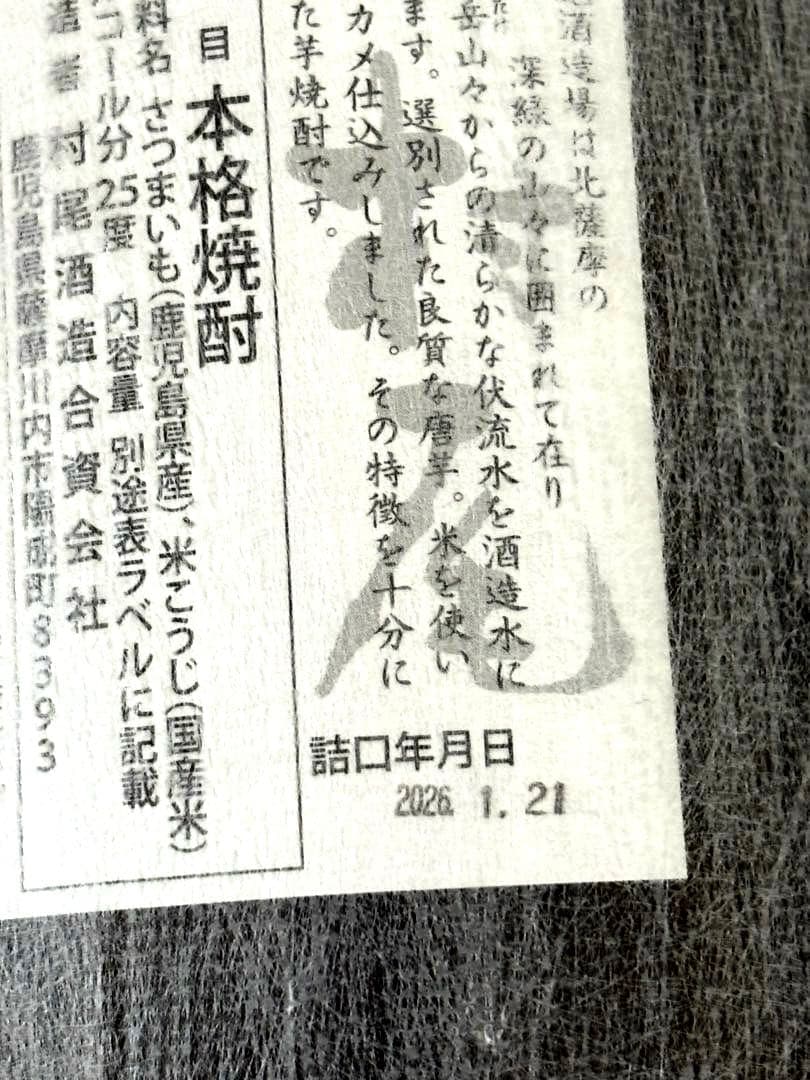 酒造場は北薩摩の
深緑の山々に囲まれて在り
岳山々からの清らかな伏流水を酒造水に
ます。選別された良質な唐芋。米を使い
カメ仕込みしました。その特徴を十分に
た芋焼酎です。
村尾
詰口年月日
2026. 1. 21
目 本格焼酎
料名 さつまいも(鹿児島県産)、米こうじ(国産米)
コール分 25度 内容量 別途表ラベルに記載
造者 村尾酒造合資会社
鹿児島県薩摩川内市陽成町8393